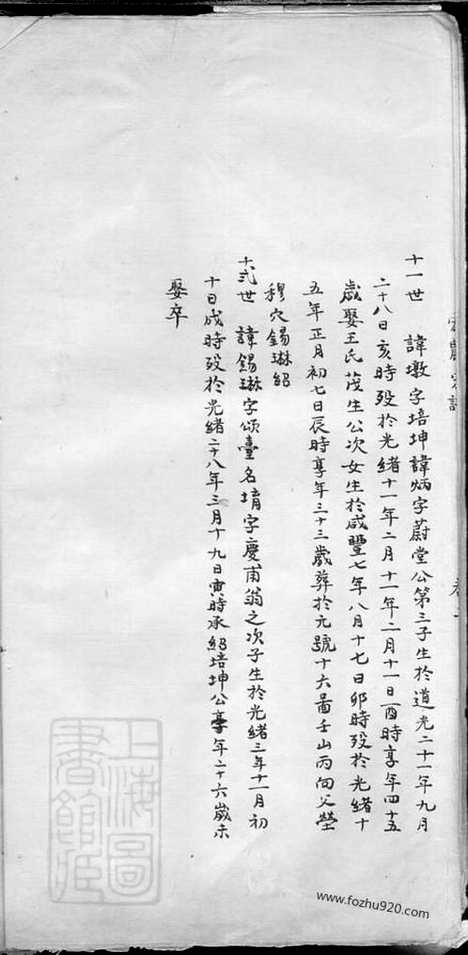 十一世 諱墩字培坤諱炳字蔚堂公第三子生於道光二十一年九月
二十八日亥時歿於光緒十一年二月十一年二月十一日酉時享年四十五
歲娶王氏茂生公次女生於咸豐七年八月十七日卯時歿於光緒十
五年正月初七日辰時享年三十三歲葬於元號十六啚壬山丙向父塋
穆穴錫琳紹
十弍世 諱錫琳字頌臺名堉字慶甫翁之次子生於光緒三年十一月初
十日戌時歿於光緒二十八年三月十九日寅時承紹培坤公享年二十六歲未
娶卒
上海圖
書館藏
www.fozhu920.com